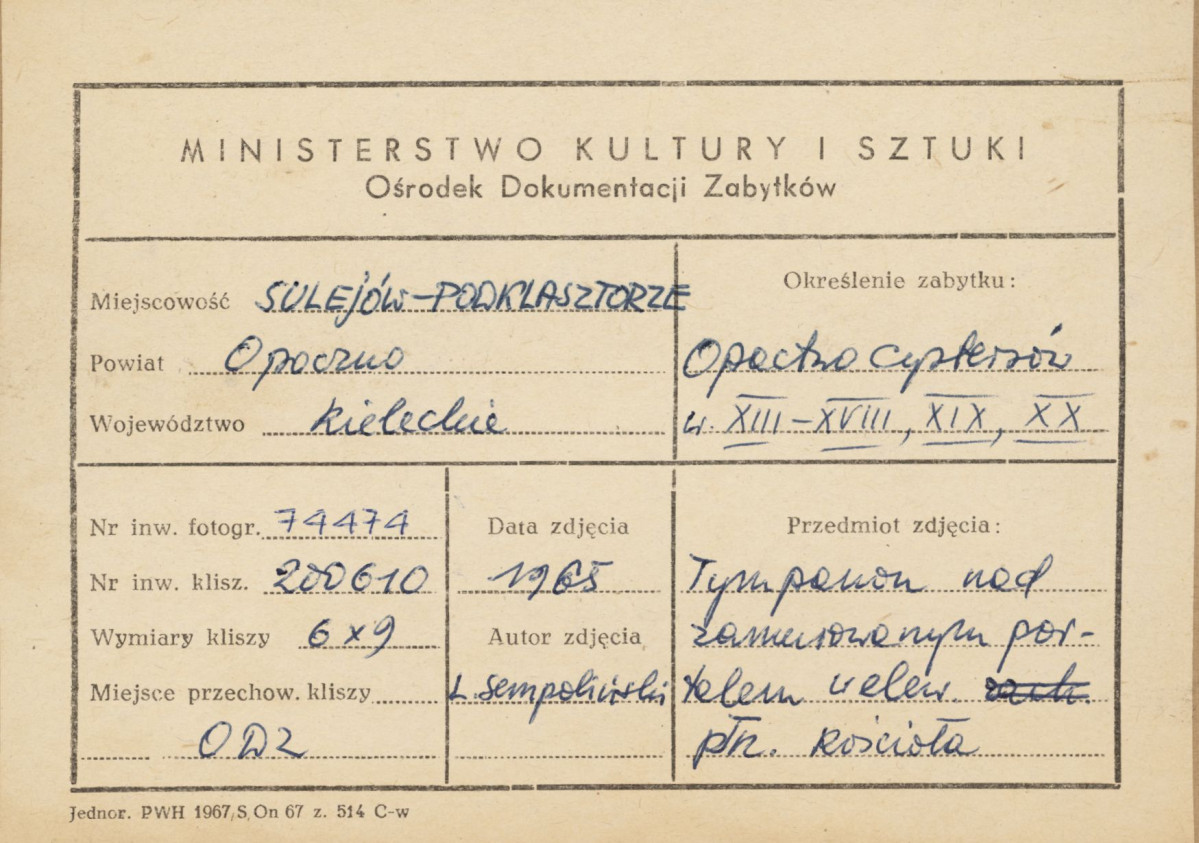 MINISTERSTWO KULTURY I SZTUKI
Ośrodek Dokumentacji Zabytków
Miejscowość SULEJÓW-PODKLASZTORZE
Powiat Opoczno
Województwo kieleckie
Określenie zabytku:
Opactwo cystersów
w. XIII-XVIII, XIX, XX
Nr inw. fotogr. 74474
Nr inw. klisz. 200610
Wymiary kliszy 6x9
Miejsce przechow. kliszy
ODZ
Data zdjęcia
1965
Autor zdjęcia
Ł. Sempoliński
Przedmiot zdjęcia:
Tympanon nad
zamurowanym por-
talem w elew. zach.
płn. kościoła
Jednor. PWH 1967, S, On 67 z. 514 C-w